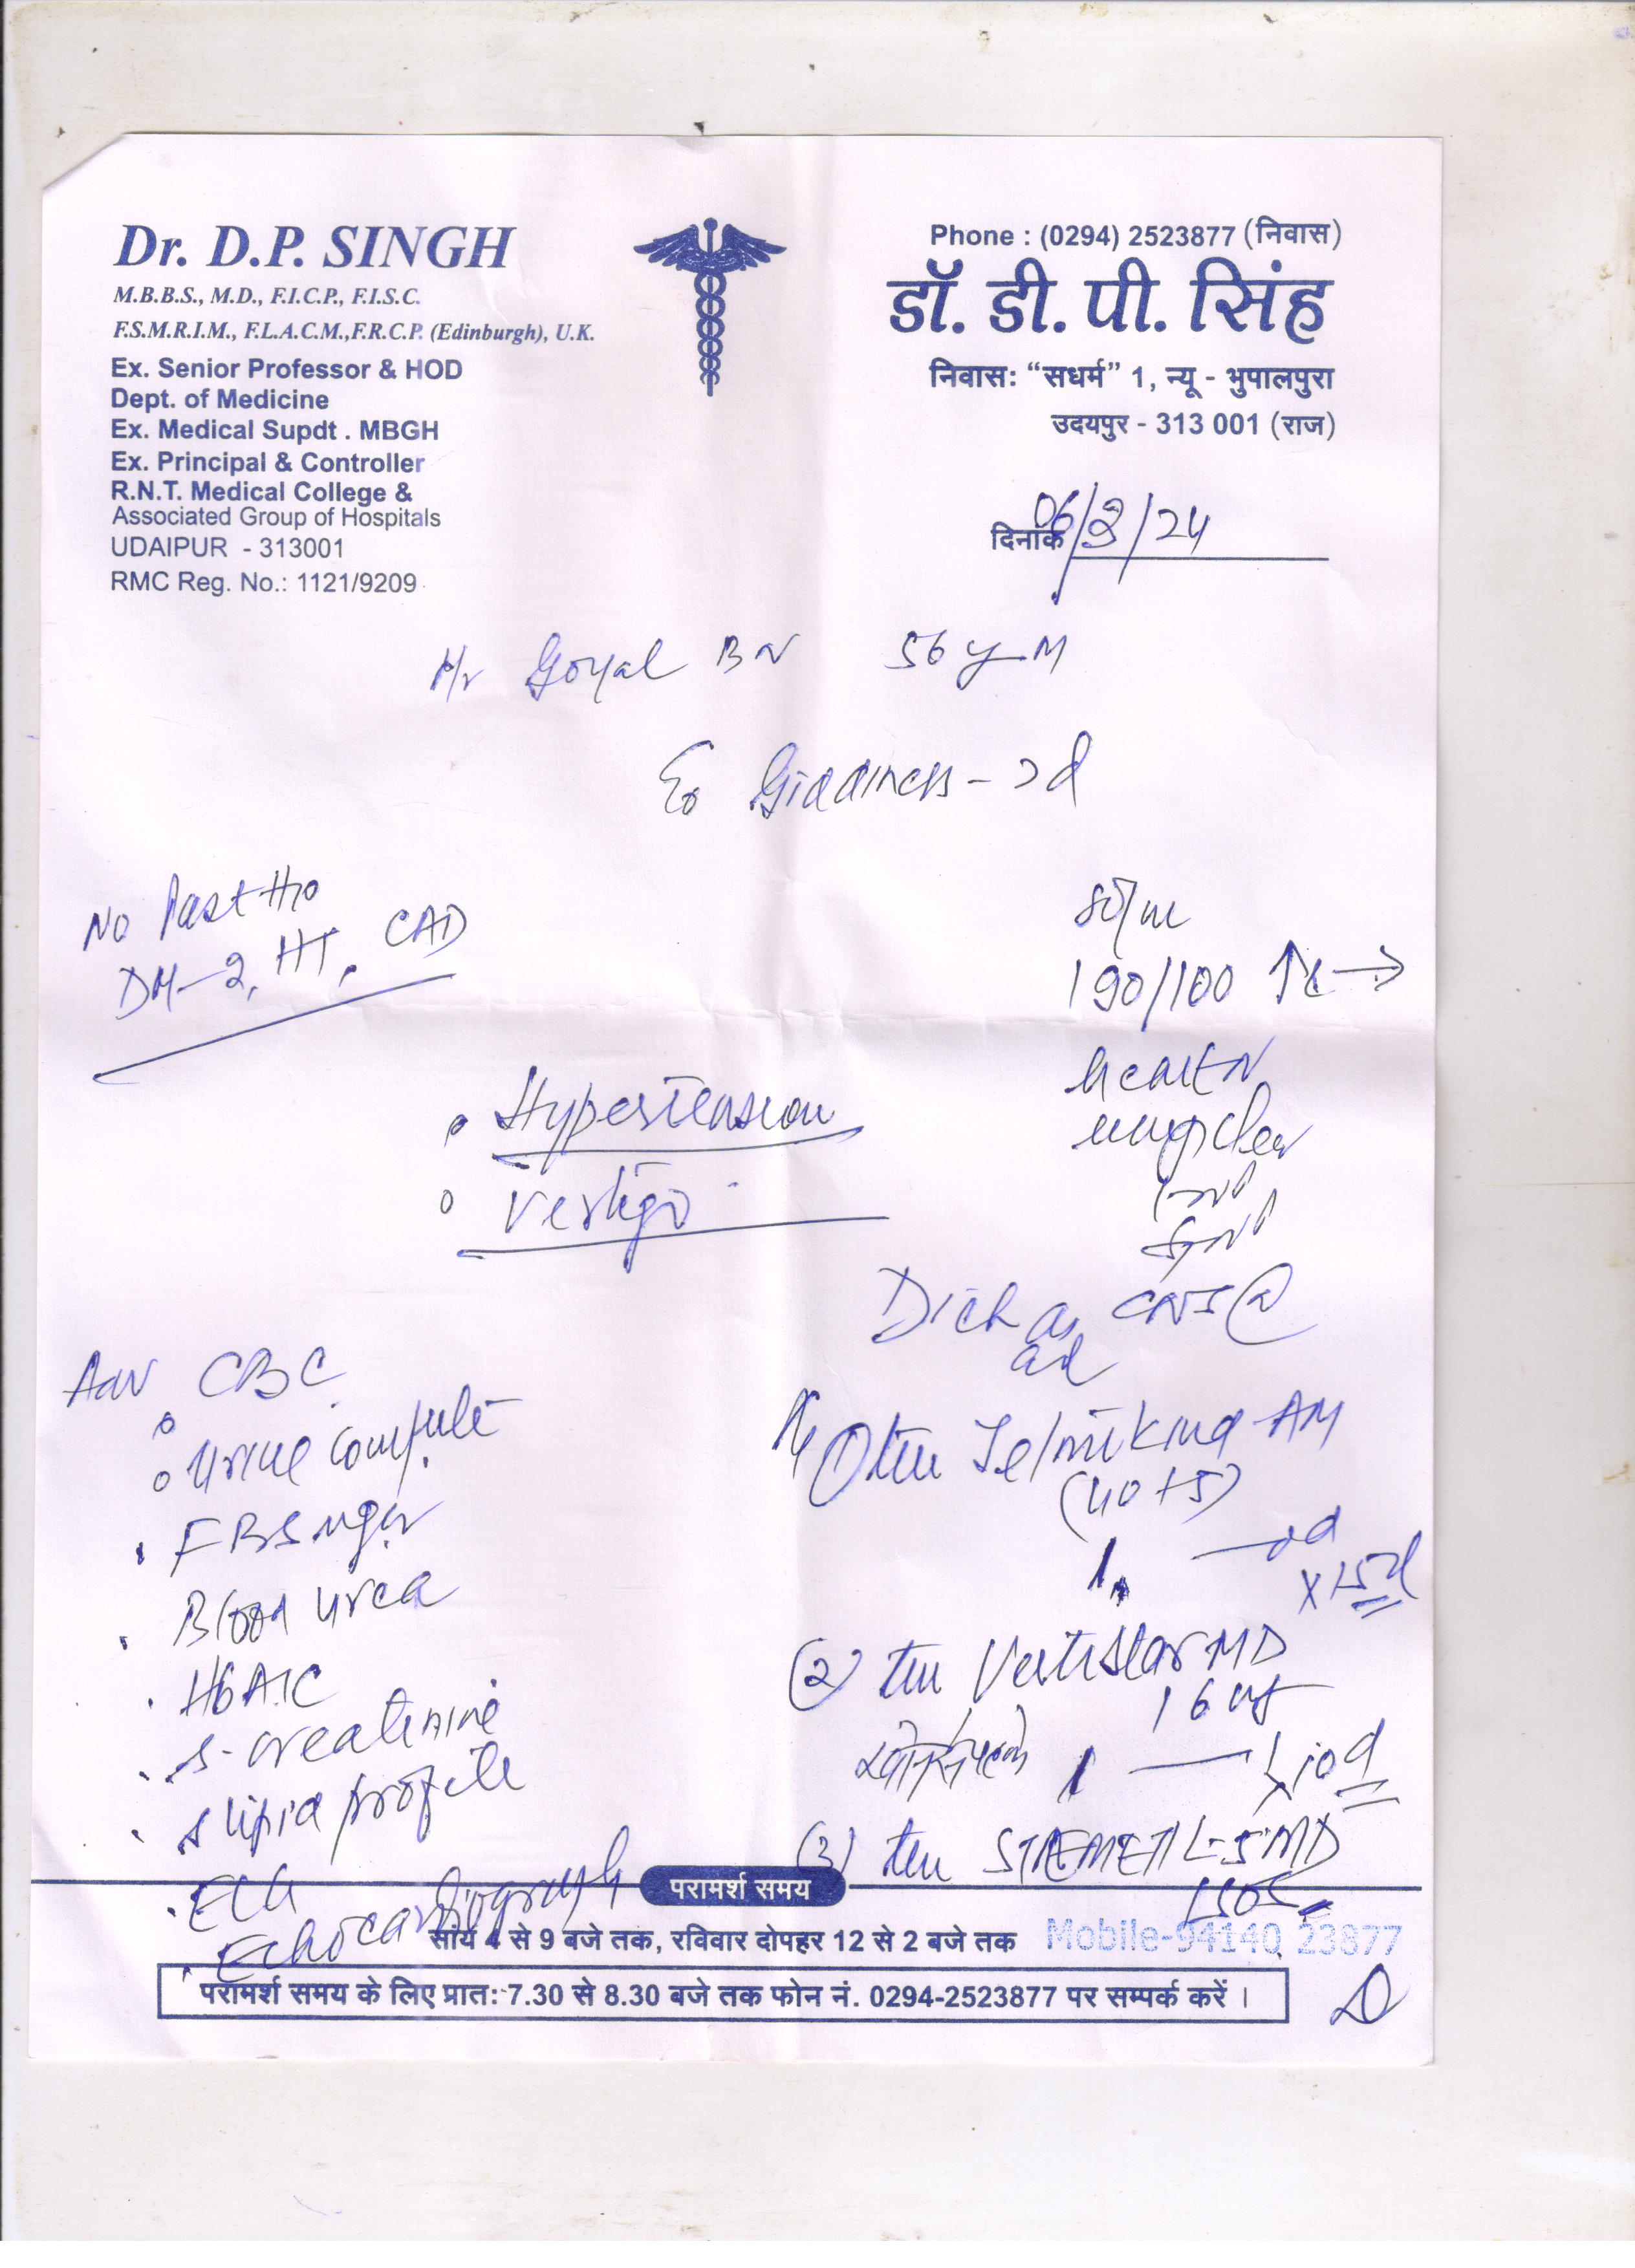 Dr. D.P. SINGH
M.B.B.S., M.D., F.I.C.P., F.I.S.C.
F.S.M.R.I.M., F.L.A.C.M.,F.R.C.P. (Edinburgh), U.K.
Ex. Senior Professor & HOD
Dept. of Medicine
Ex. Medical Supdt . MBGH
Ex. Principal & Controller
R.N.T. Medical College &
Associated Group of Hospitals
UDAIPUR - 313001
RMC Reg. No.: 1121/9209
Phone : (0294) 2523877 (निवास)
डॉ. डी. पी. सिंह
निवास: “सधर्म” 1, न्यू - भुपालपुरा
उदयपुर - 313 001 (राज)
दिनांक 06/3/24
Mr Goyal B N 56 y M
Giddiness
No Past H/o
DM-2, HT, CAD
80/m
190/100
heart N
lungs clear
• Hypertension
• Vertigo
CNS
Adv CBC
• Urine complete
• F B Sugar
• Blood urea
• HbA1C
• S-creatinine
• S lipid profile
• ECG
• Echocardiograph
(1) Telmikind-AM
(40+5)
1 — od
x 15d
(2) Vertistar MD
16 mg
1 —
(3) STEMETIL-5 MD
SOS
परामर्श समय
सांय 4 से 9 बजे तक, रविवार दोपहर 12 से 2 बजे तक
Mobile-94140 23877
परामर्श समय के लिए प्रात: 7.30 से 8.30 बजे तक फोन नं. 0294-2523877 पर सम्पर्क करें ।